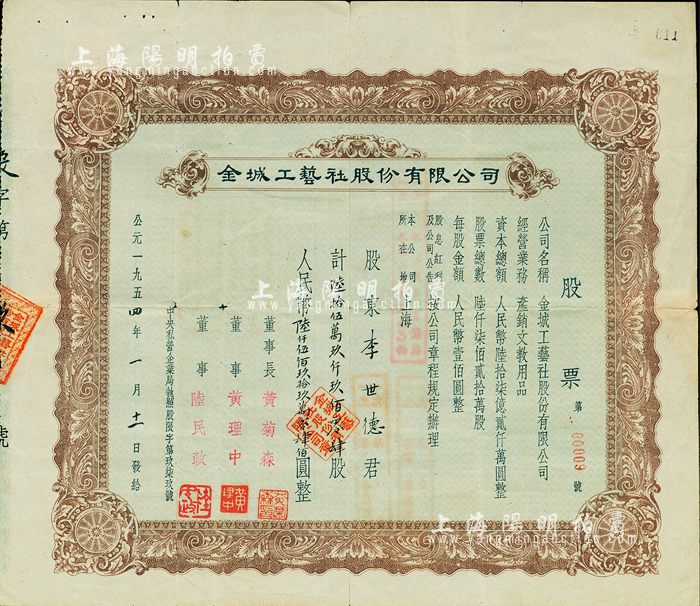 金城工藝社股份有限公司
股票 第 00009 號
公司名稱 金城工藝社股份有限公司
經營業務 產銷文教用品
資本總額 人民幣陸拾柒億貳仟萬圓整
股票總數 陸仟柒佰貳拾萬股
每股金額 人民幣壹佰圓整
股息紅利及公司公告 按公司章程規定辦理
本公司所在地 上海
股東 李世德 君
計 陸拾伍萬玖仟玖佰 肆股
人民幣陸仟伍佰玖拾玖萬 肆佰圓整
董事長 黃菊森
董事 黃理中
董事 陸民政
中央私營企業局 股限字第玖柒玖號
公元一九五四年一月十二日發給
011
上海陽明拍賣
www.yangmingauction.com
上海陽明拍賣
www.yangmingauction.com
上海陽明拍賣
www.yangmingauction.com